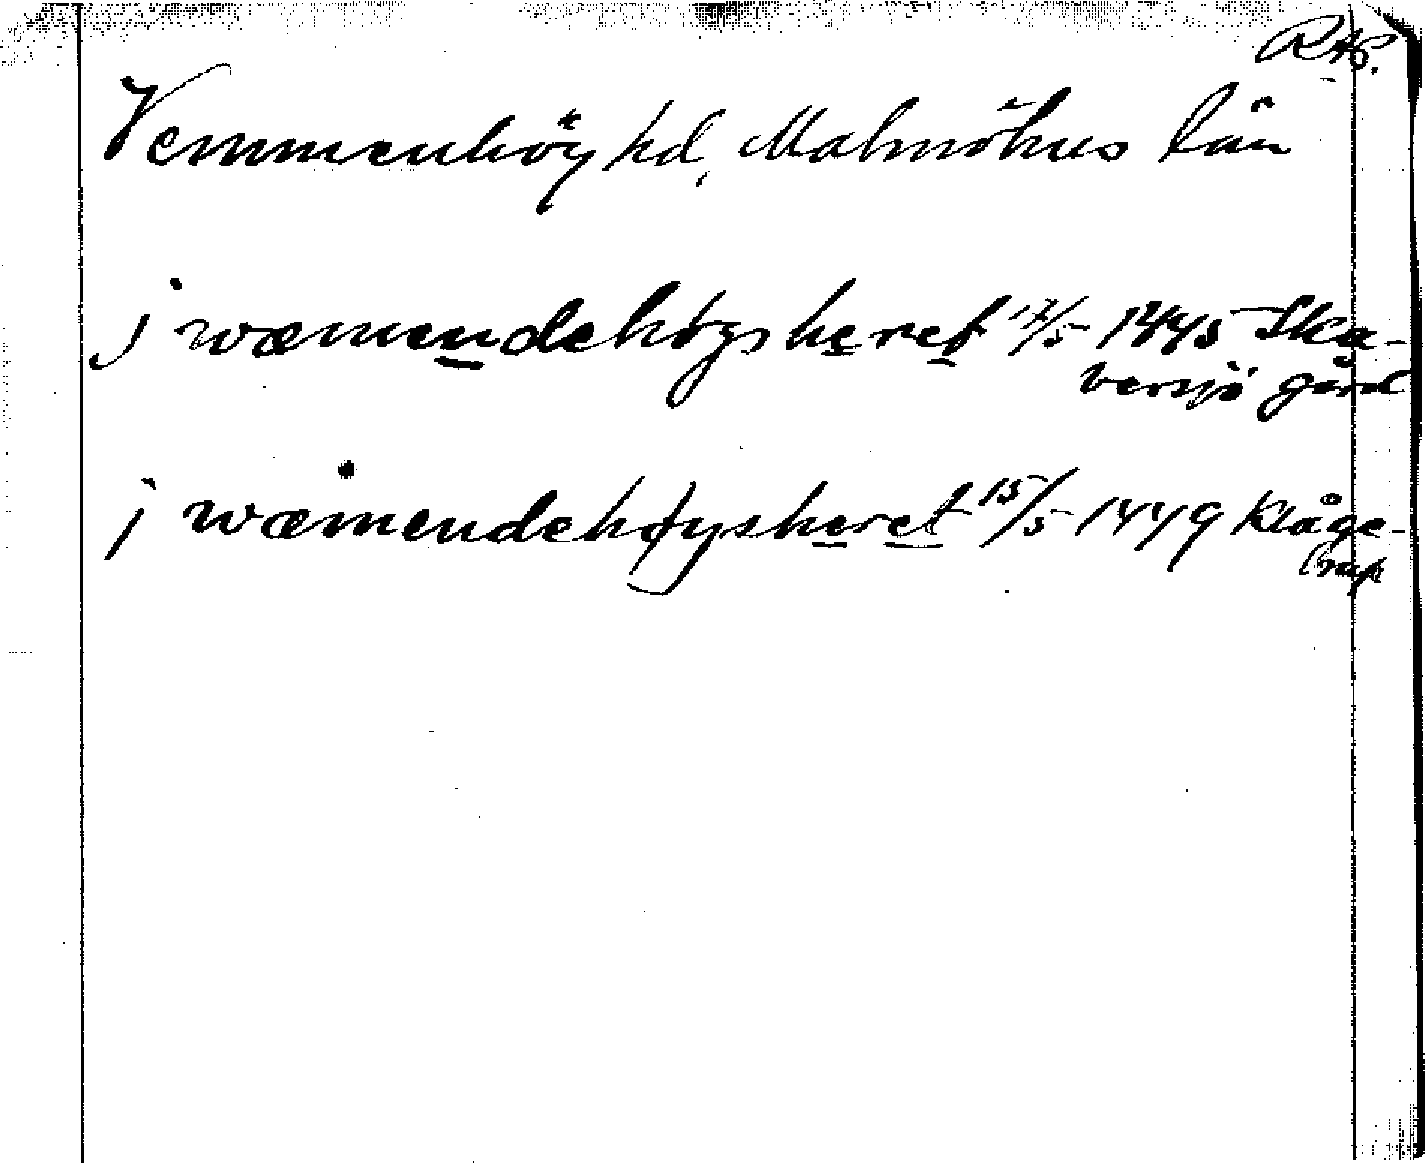 RAP.
Vemmenhög hd, Malmöhus län
j wæmendehøgsheret 17/5 1445 Ska-
bersjö gård
j wæmendehøysheret 15/5 1449 Klåge-
rup